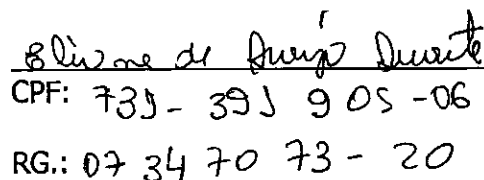 Elivone de Araújo Duarte
CPF: 739-399 905-06
RG.: 07 34 70 73 - 20